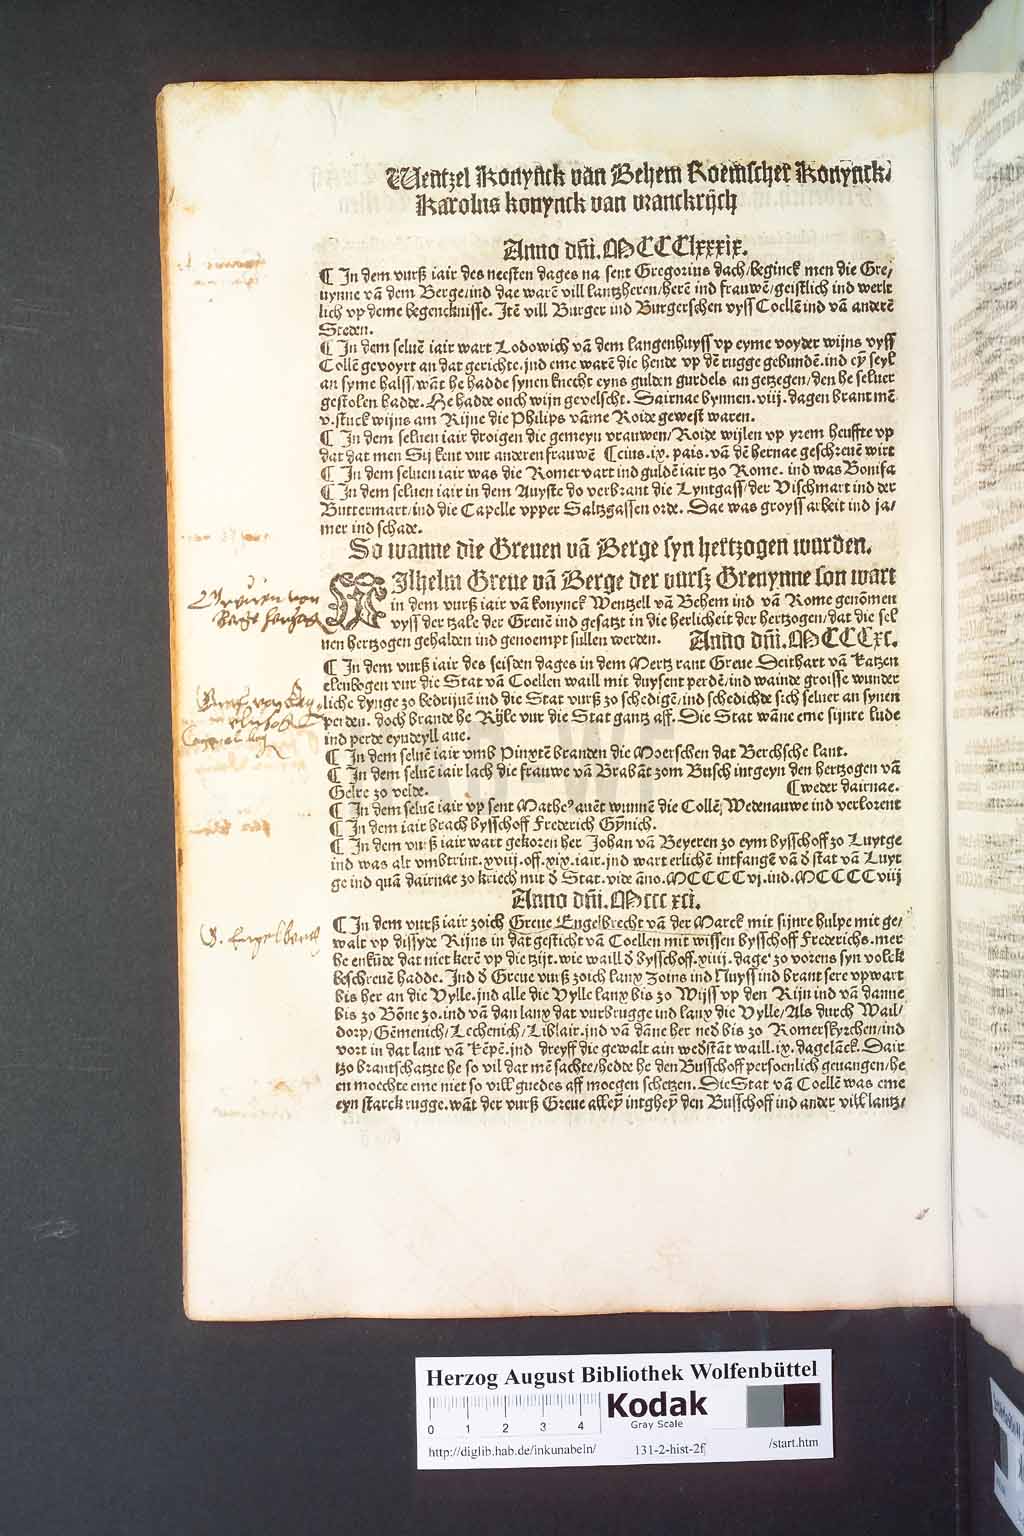 Wentzel Konynck van Behem Roemscher Konynck.
Karolus konynck van vranckrijch
Anno dñi. MCCClxxxix.
¶ In dem vurß iair des neesten dages na sent Gregorius dach/beginck men die Gre/
uynne vã dem Berge/ind dae warẽ vill lantzheren/herẽ ind frauwẽ/geistlich ind werlt
lich vp deme begencknisse. Itẽ vill Burger ind Burgerschen vyss Coellẽ ind vã anderẽ
Steden.
¶ In dem seluẽ iair wart Lodowich vã dem langenhuyss vp eyme voyder wijns vyss
Collẽ gevoyrt an dat gerichte.ind eme warẽ die hende vp dẽ rugge gebundẽ.ind eỹ seyl
an syme halss/wãt he hadde synen knecht eyns gulden gurdels an getzegen/den he seluer
gestolen hadde. He hadde ouch wijn gevelscht. Dairnae bynnen .viij. dagen brant mẽ
v.stuck wijns am Rijne die Philips vãme Roide gewest waren.
¶ In dem seluen iair droigen die gemeyn vrauwen/Roide wijlen vp yrem heuffte vp
dat dat men Sij kent vur anderen frauwẽ Ceius .ix. pais. vã dẽ hernae geschreuẽ wirt
¶ In dem seluen iair was die Romer vart ind guldẽ iair tzo Rome. ind was Bonifa
¶ In dem seluen iair in dem Auyste do verbrant die Lyntgass/der Vischmart ind der
Buttermart/ind die Capelle vpper Saltzgassen orde. Dae was groyss arbeit ind ja/
mer ind schade.
So wanne die Greuen vã Berge syn hertzogen wurden.
WIlhelm Greue vã Berge der vurß Greuynne son wart
in dem vurß iair vã konynck Wentzell vã Behem ind vã Rome genõmen
vyss der tzale der Greuẽ ind gesatzt in die herlicheit der hertzogen/dat die sel
uen hertzogen gehalden ind genoempt sullen werden. Anno dñi. MCCCxc.
¶ In dem vurß iair des seisden dages in dem Mertz rant Greue Deithart vã Katzen
elenbogen vur die Stat vã Coellen waill mit duysent perdẽ/ind wainde groisse wunder
liche dynge zo bedrijuẽ ind die Stat vurß zo schedigẽ/ind schedichde sich seluer an synen
perden. doch brande he Rijle vur die Stat gantz aff. Die Stat wãne eme sijnre lude
ind perde eyndeyll aue.
¶ In dem seluẽ iair vmb Pinxtẽ branden die Moerschen dat Berchsche lant.
¶ In dem seluẽ iair lach die frauwe vã Brabãt zom Busch intgeyn den hertzogen vã
Gelre zo velde. ¶ weder dairnae.
¶ In dem seluẽ iair vp sent Matheꝰ auẽt wunnẽ die Collẽ, Wedenauwe ind verlorent
¶ In dem iair brach bysschoff Frederich Gỹnich.
¶ In dem vurß iair wart gekoren her Johan vã Beyeren zo eym bysschoff zo Luytge
ind was alt vmbtrint .xviij.off.xix.iair.ind wart erlichẽ intfangẽ vã ð stat vã Luyt
ge ind quã dairnae zo kriech mit ð Stat.vide ãno.MCCCCvj.ind.MCCCCviij
Anno dñi. Mccc xci.
¶ In dem vurß iair zoich Greue Engelbrecht vã der Marck mit sijnre hulpe mit ge/
walt vp dissyde Rijns in dat gesticht vã Coellen mit wissen bysschoff Frederichs.mer
he enkũde dat niet kerẽ vp die tzijt.wie waill ð bysschoff.xiiij.dage zo vorens syn volck
beschreuẽ hadde. Ind ð Greue vurß zoich lanx Zoins ind Nuyss ind brant sere vpwart
bis her an die Vylle.ind alle die Vylle lanx bis zo Wijss vp den Rijn ind vã danne
bis zo Bõne zo.ind vã dan lanx dat vurbrugge ind lanx die Vylle/Als durch Wail/
dorp/Gẽmenich/Lechenich/Liblair.ind vã dãne her neð bis zo Romerskyrchen/ind
vort in dat lant vã Kẽpẽ.ind dreyff die gewalt ain weðstãt waill.ix.dagelãck. Dair
tzo brantschatzte he so vil dat mẽ sachte/hedde he den Busschoff persoenlich geuangen/he
en moechte eme niet so vill guedes aff moegen schetzen. Die Stat vã Coellẽ was eme
eyn starck rugge.wãt der vurß Greue alleỹ intgheỹ den Busschoff ind ander vill lantz/
Greuen von
Berge hertzog
G. Engelberts
Herzog August Bibliothek Wolfenbüttel
0 1 2 3 4
Kodak
Gray Scale
http://diglib.hab.de/inkunabeln/ 131-2-hist-2f /start.htm